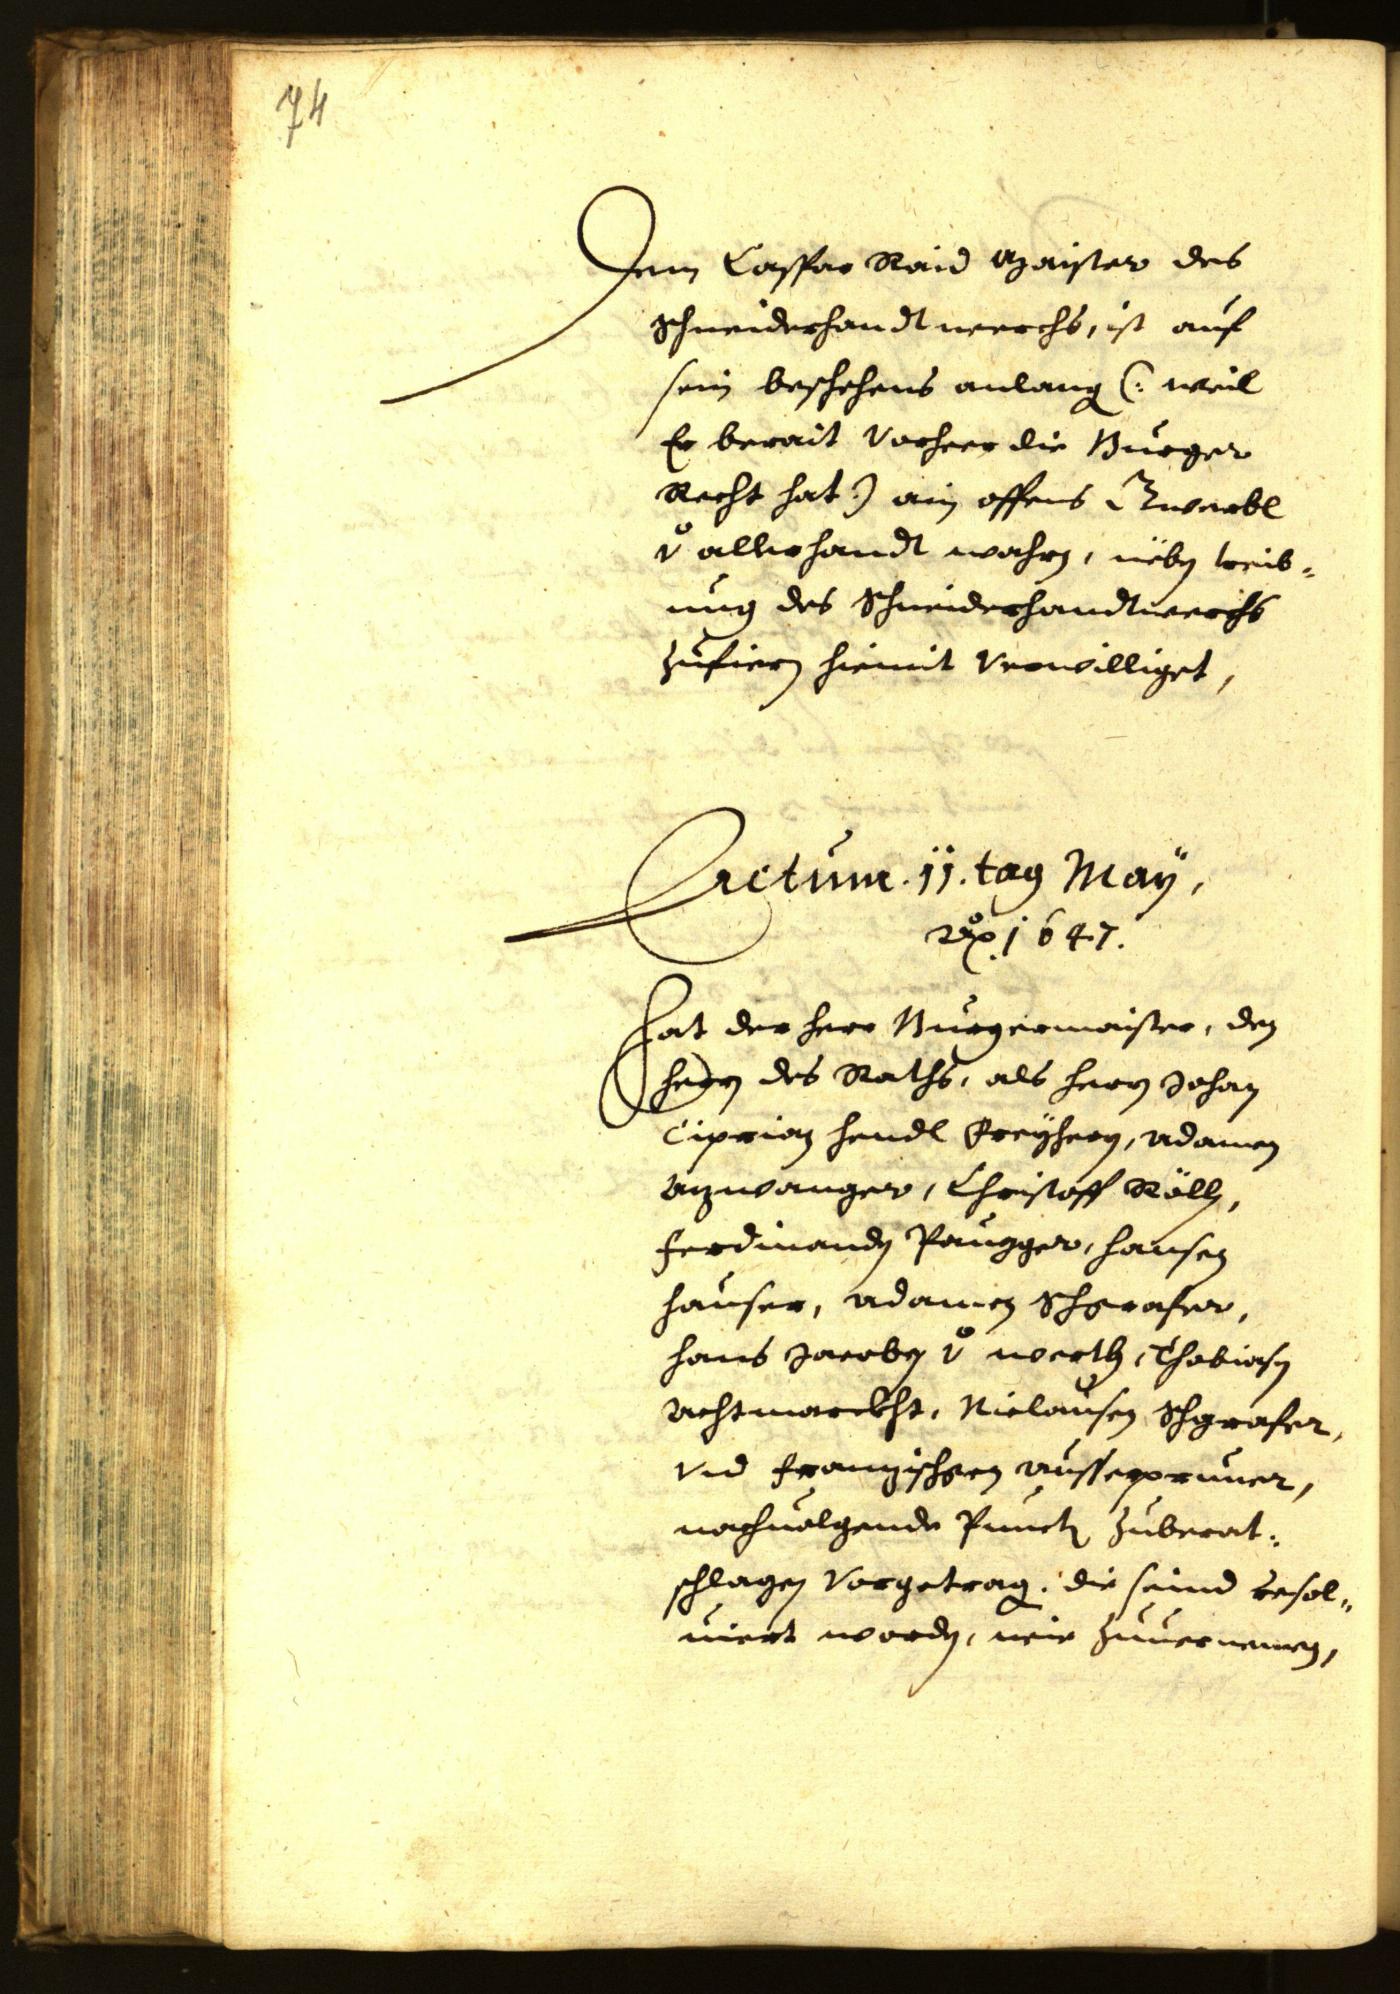 74
Dem Casspar Raid Maister des
Schneiderhandtwerchs, ist auf
sein beschehens anlang (: weil
Er berait Vorheer die Burger
Recht hat :) ain offens Gwerbl
v̊ allerhandt wahrn, nëbn treib=
ung des Schneiderhandtwerchs
zufiern hiemit Verwilliget,
Actum. 11. tag May,
Aõ. 1647.
Hat der herr Burgermaister, den
herrn des Raths, als herrn Johan
Ciprian hendl Freÿherrn, Adamen
Anzwanger, Christoff Röll,
Ferdinandn Paugger, hansen
hauser, Adamen Schgrafer,
hans Jacobn v̊ werth, Thobiasn
Achtmarckht, Niclausen Schgrafer,
vnd Franzischgen Ausserpruner,
nachuolgende Punct zuberat=
schlagen Vorgetrag. die seind resol=
uiert wordn, wie zuuernemen,